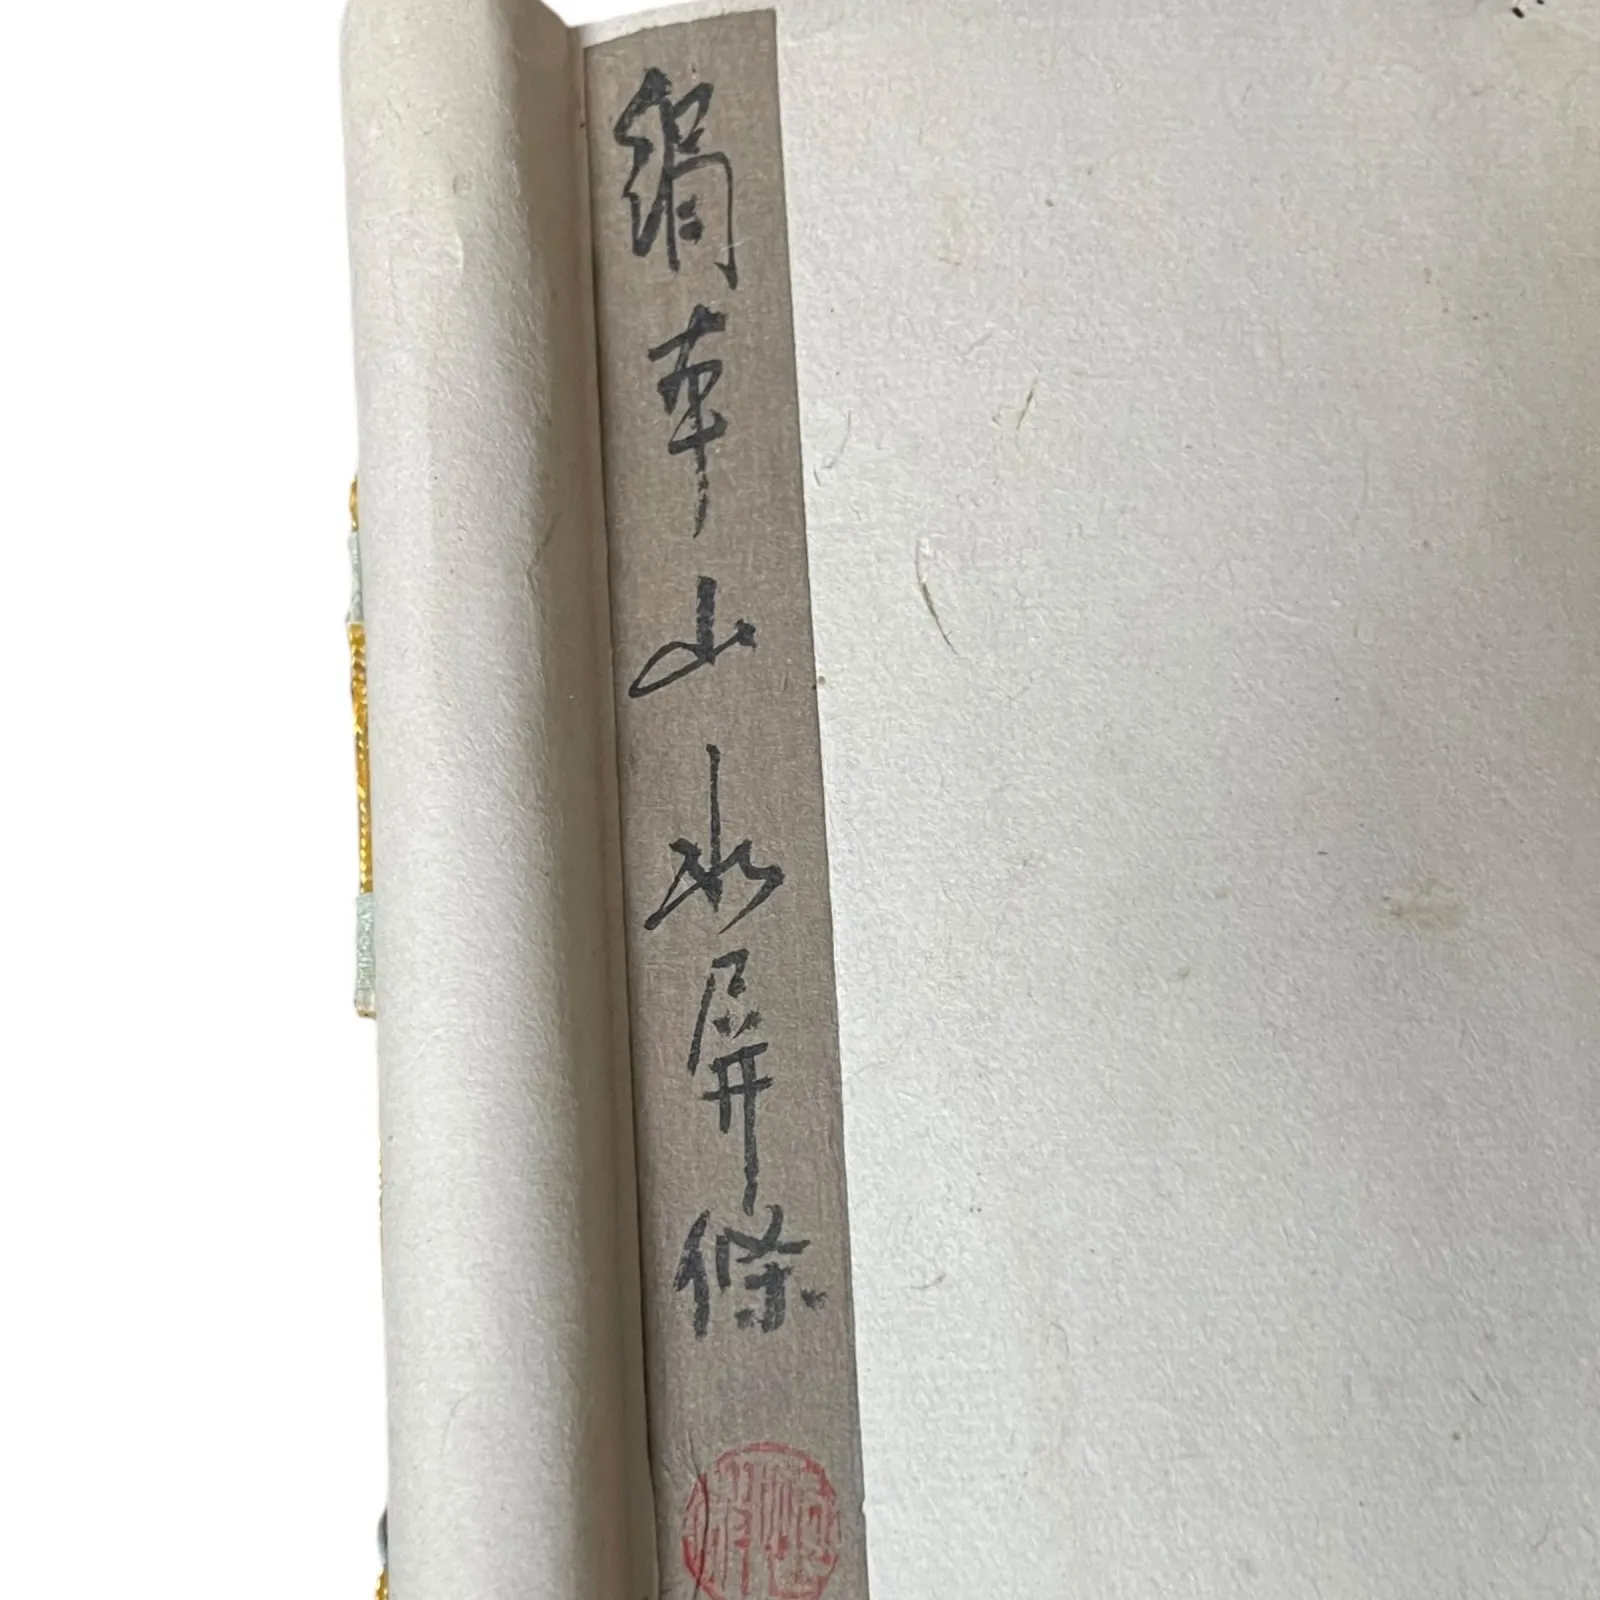 絹本山水屏條